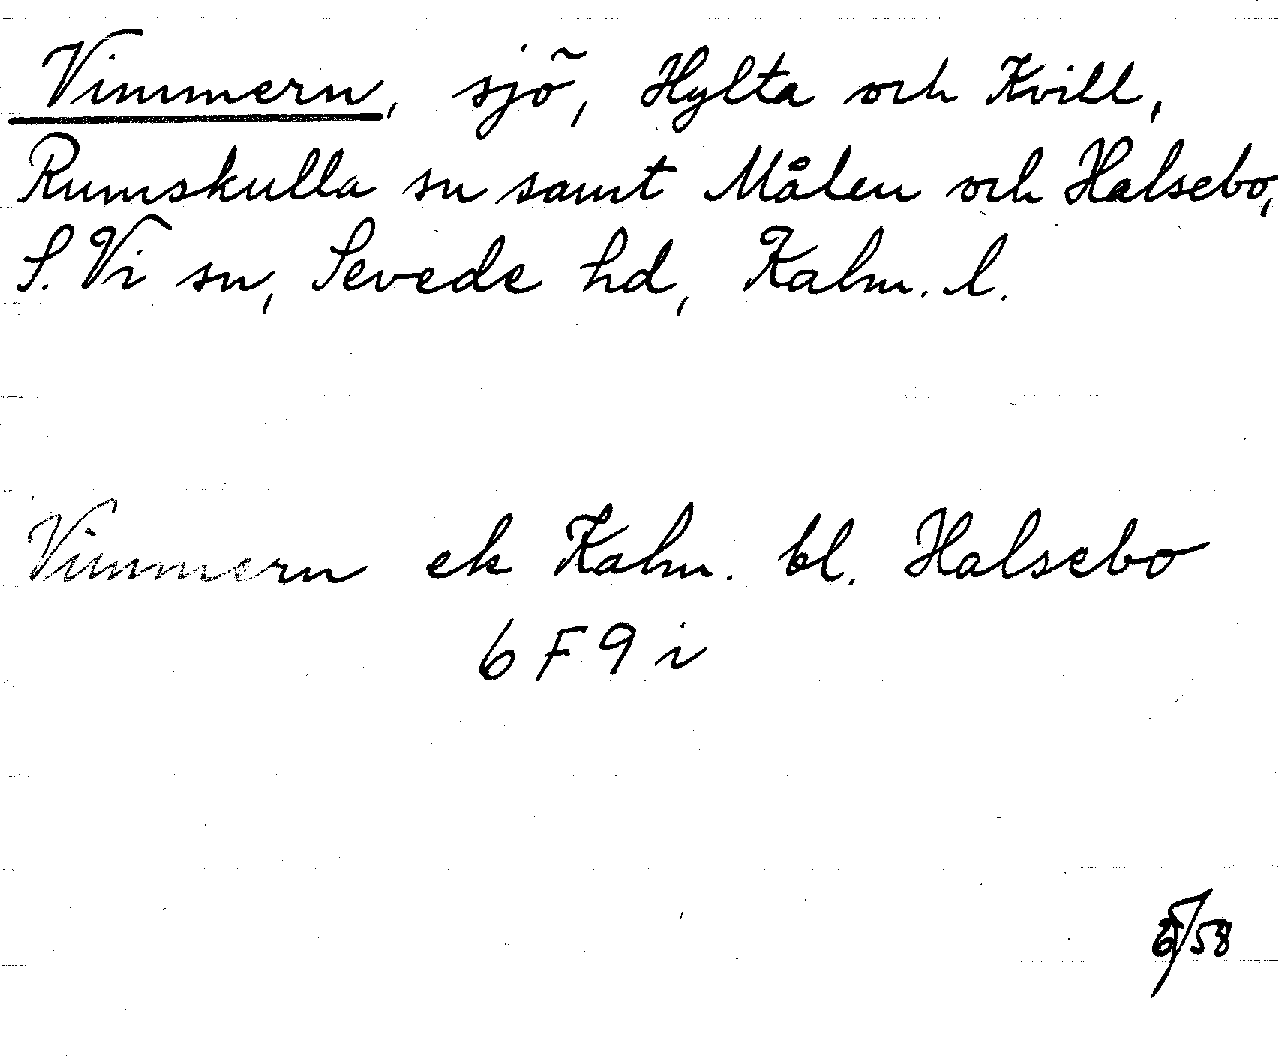 Vimmern, sjö, Hylta och Kvill,
Rumskulla sn samt Målen och Halsebo,
S. Vi sn, Sevede hd, Kalm. l.
Vimmern ek Kalm. bl. Halsebo
6 F 9 i
/58